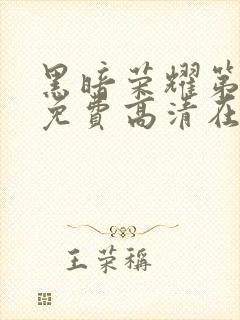 黑暗荣耀第
免費高清在
王荣稱